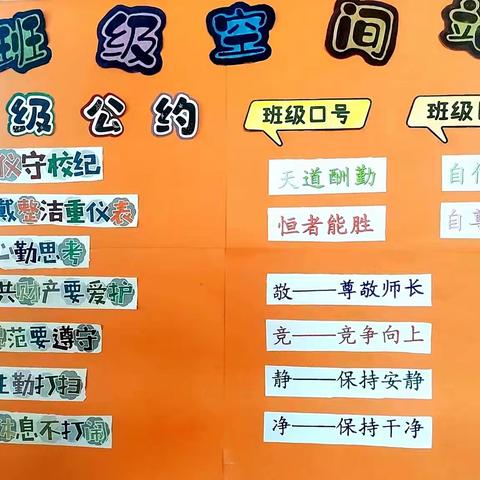 班级空间站
级公约
仪守校纪
戴整洁重仪表
心勤思考
共财产要爱护
范要遵守
生勤打扫
休息不打闹
班级口号
天道酬勤
恒者能胜
敬——尊敬师长
竞——竞争向上
静——保持安静
净——保持干净
班级
自信
自尊